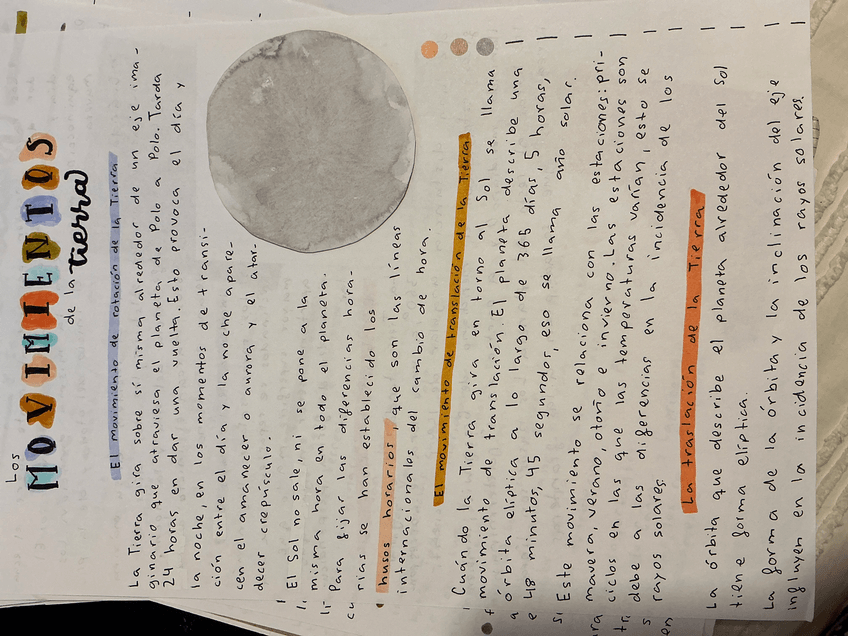 Los
MOVIMIENTOS
de la tierra
El movimiento de rotación de la Tierra
La Tierra gira sobre sí misma alrededor de un eje ima-
ginario que atraviesa el planeta de Polo a Polo. Tarda
24 horas en dar una vuelta. Esto provoca el día y
la noche, en los momentos de transi-
ción entre el día y la noche apare-
cen el amanecer o aurora y el atar-
decer crepúsculo.
El Sol no sale, ni se pone a la
misma hora en todo el planeta.
Para fijar las diferencias hora-
rias se han establecido los
husos horarios, que son las líneas
internacionales del cambio de hora.
El movimiento de translación de la Tierra
Cuándo la Tierra gira en torno al Sol se llama
movimiento de translación. El planeta describe una
órbita elíptica a lo largo de 365 días, 5 horas,
48 minutos, 45 segundos, eso se llama año solar.
Este movimiento se relaciona con las estaciones: pri-
mavera, verano, otoño e invierno. Las estaciones son
ciclos en las que las temperaturas varían, esto se
debe a las diferencias en la incidencia de los
rayos solares.
La traslación de la Tierra
La órbita que describe el planeta alrededor del Sol
tiene forma elíptica.
La forma de la órbita y la inclinación del eje
influyen en la incidencia de los rayos solares.